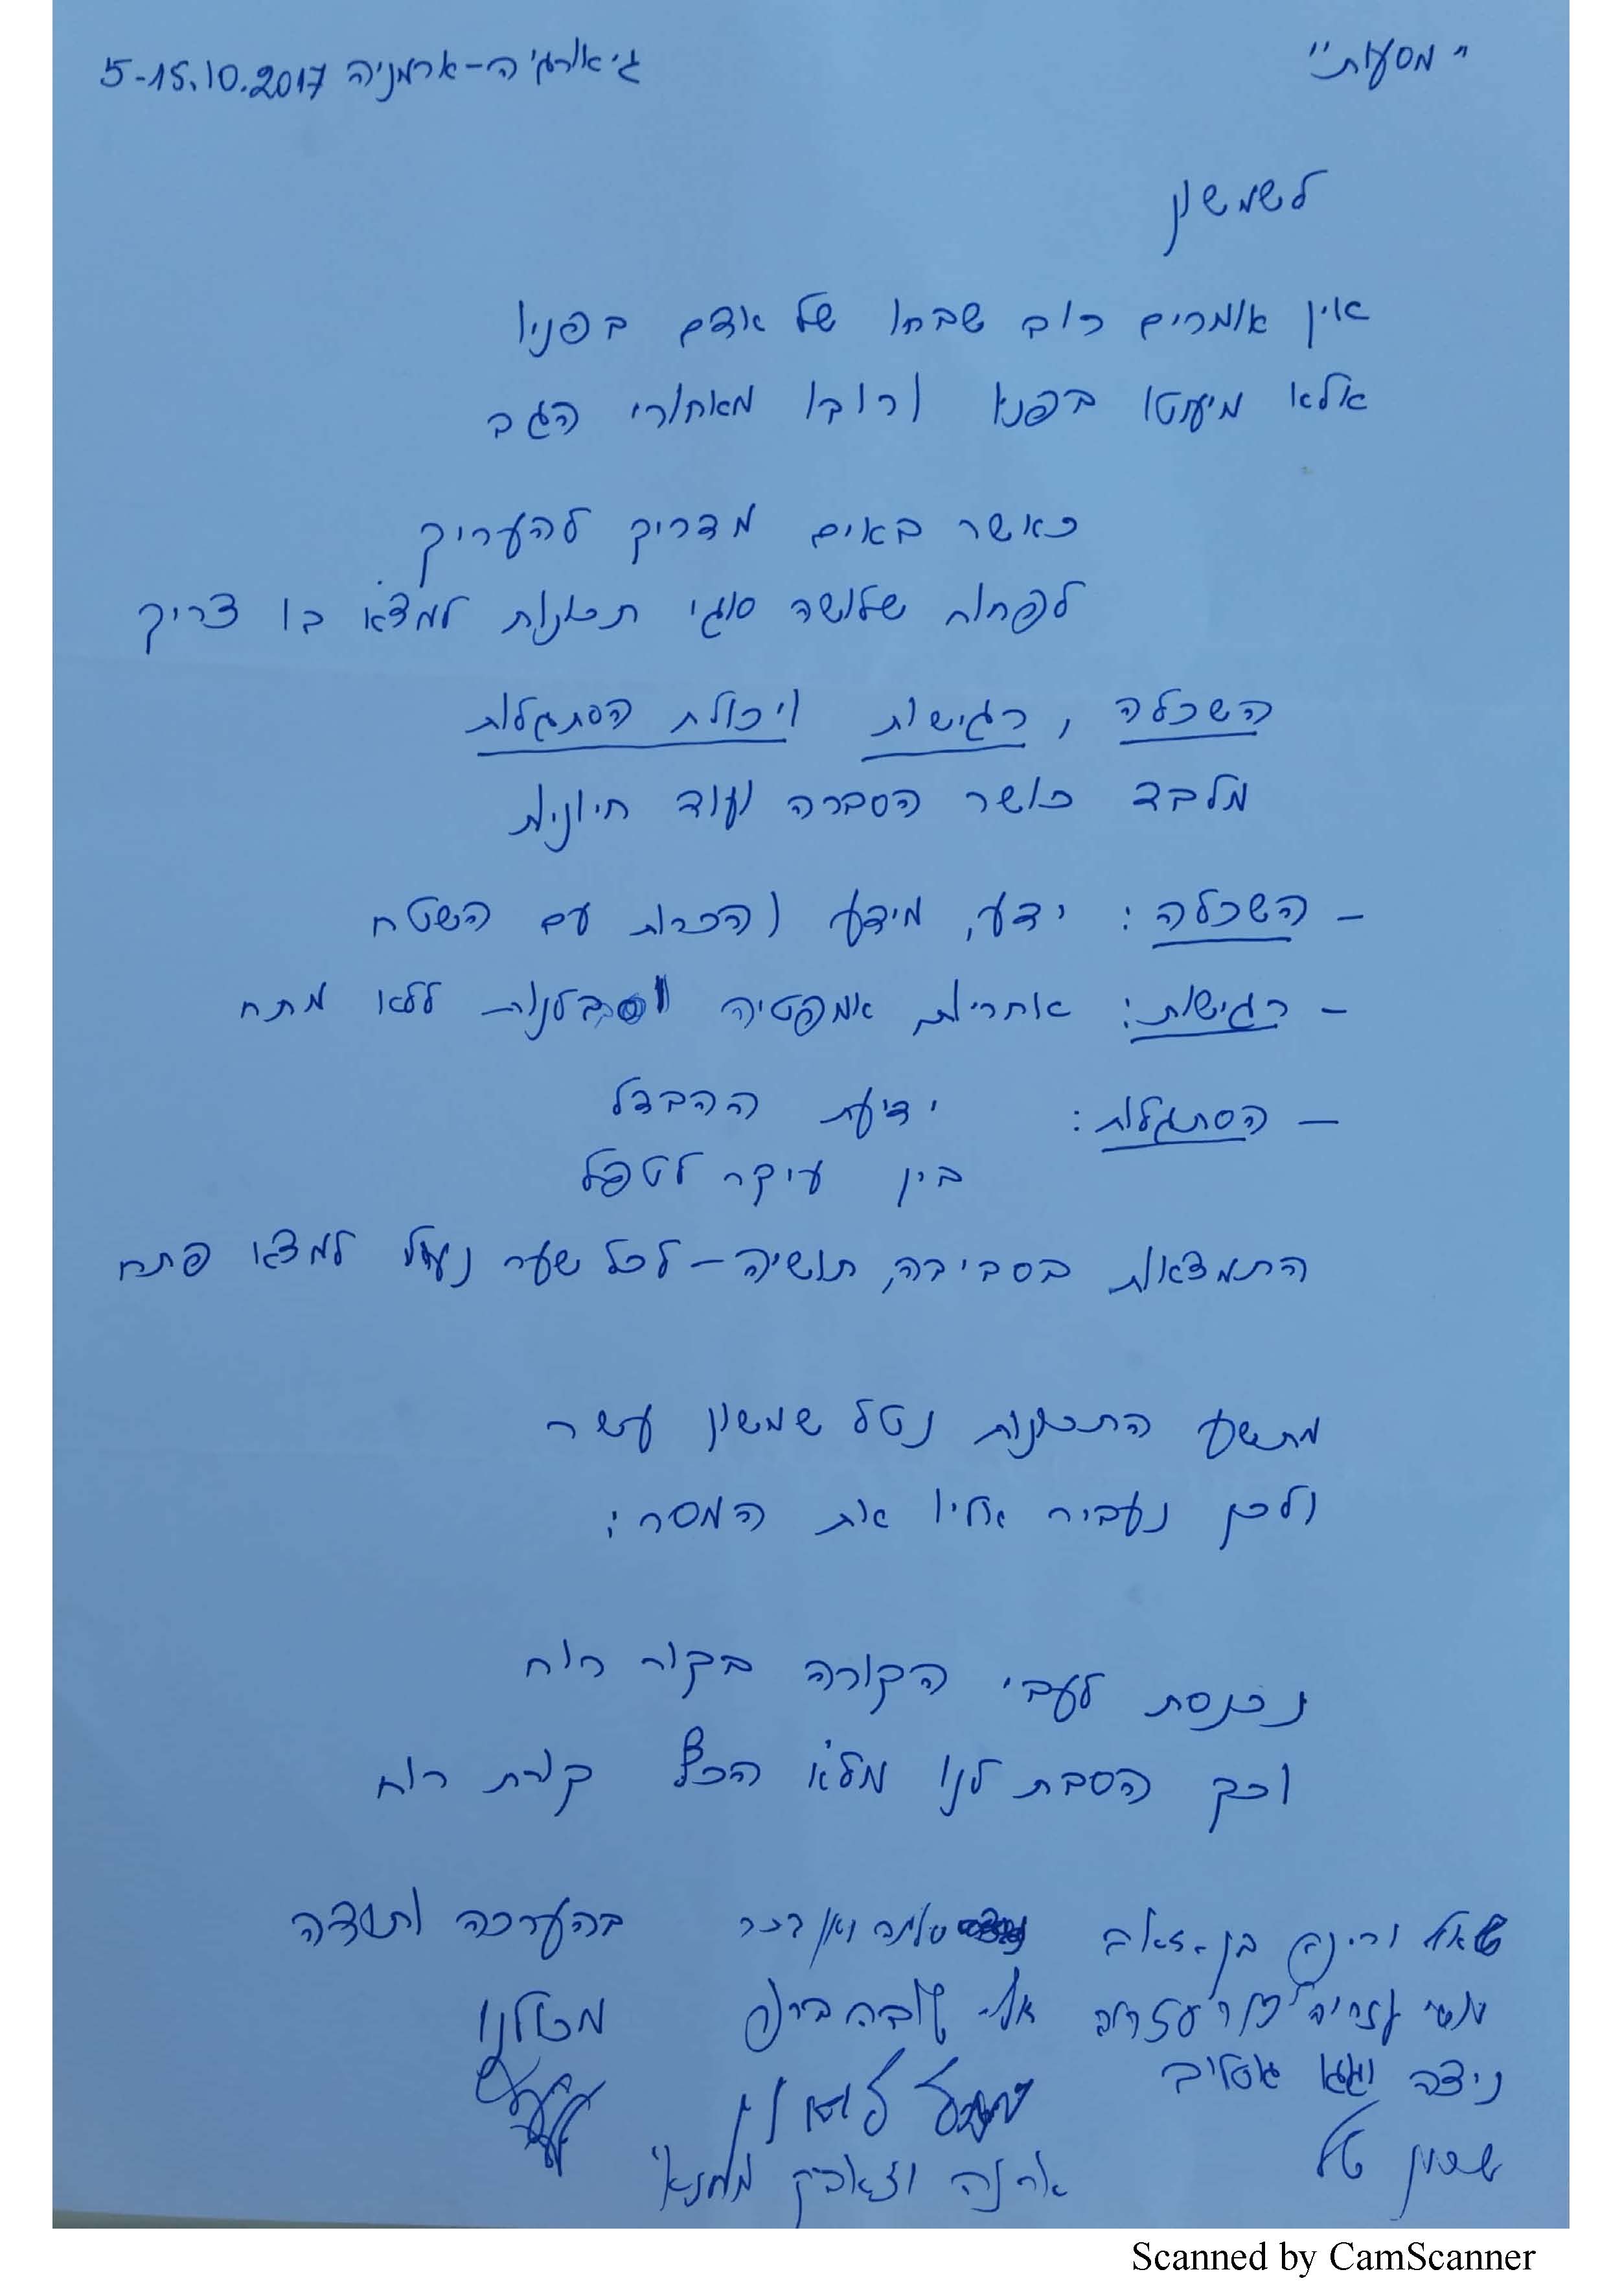 "מסעות"
ג'אורג'יה-ארמניה 5-15.10.2017
לשמשון
אין אומרים רוב שבחו של אדם בפניו
אלא מיעוטו בפניו ורובו מאחורי הגב
כאשר באים מדריך להעריך
לפחות שלושה סוגי תכונות למצא בו צריך
השכלה, רגישות ויכולת הסתגלות
מלבד כושר הסברה ועוד חיוניות
- השכלה: ידע, מידע והכרות עם השטח
- רגישות: אחריות, אמפטיה וסבלנות ללא מתח
- הסתגלות: ידיעת ההבדל
בין עיקר לטפל
התמצאות בסביבה, תושיה - לכל שער נעול למצוא פתח
מתשע התכונות נטל שמשון עשר
ולכן נעביר אליו את המסר:
נכנסת לעבי הקורה בקור רוח
וכך הסבת לנו מלא הכף קורת רוח
בהערכה ותודה
מכולנו
שאול ורינה בן-זאב
ניצה
ששון טל
ארנה וזאביק